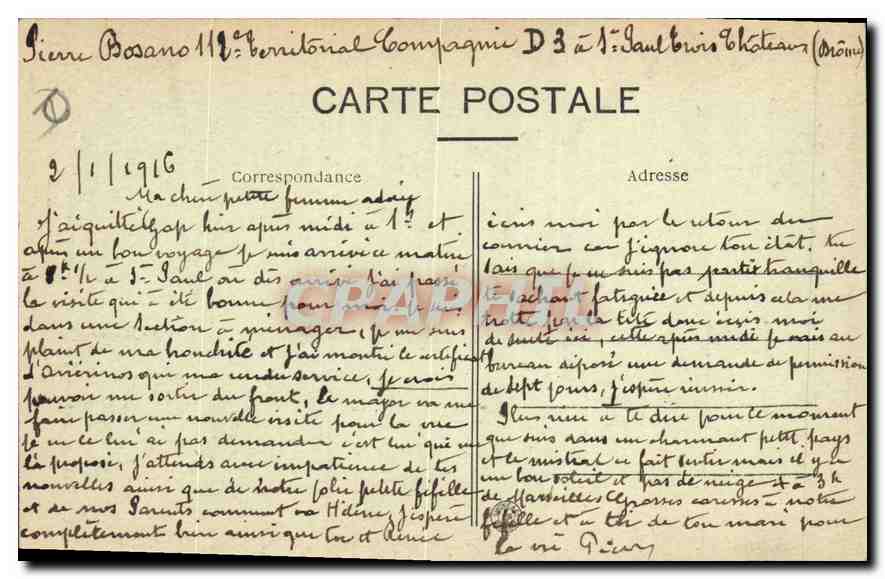 Pierre Bosano 112e Territorial Compagnie D 3 à St Paul Trois Châteaux (Drôme)
CARTE POSTALE
2/1/1916
Correspondance
Adresse
Ma chère petite femme adorée
J'ai quitté Gap hier après midi à 1h et
après un bon voyage je suis arrivé ce matin
à 8h 1/2 à St Paul où dès arrivé j'ai passé
la visite qui a été bonne pour moi je suis
dans une section à ménager, je me suis
plaint de ma bronchite et j'ai montré le certificat
d'Aviérinos qui m'a rendu service, je crois
pouvoir me sortir du front, le major va me
faire passer une nouvelle visite pour la vue
je ne ce lui ai pas demander c'est lui qui me
l'a proposé, j'attends avec impatience de tes
nouvelles ainsi que de notre jolie petite fifille
et de nos Parents comment va Hélène, j'espère
complètement bien ainsi que toi et Renée
écris moi par le retour du
courrier car j'ignore ton état. tu
sais que je ne suis pas parti tranquille
te sachant fatiguée et depuis cela me
trotte sur la tête donc écris moi
de suite ici, cette après midi je vais au
bureau déposé une demande de permission
de sept jours, j'espère réussir.
Plus rien à te dire pour le moment
que suis dans un charmant petit pays
et le mistral ce fait sentir mais il y a
un bon soleil et pas de neige et à 3h
de Marseille Grosses caresses à notre
fifille et à toi de ton mari pour
la vie Pierre